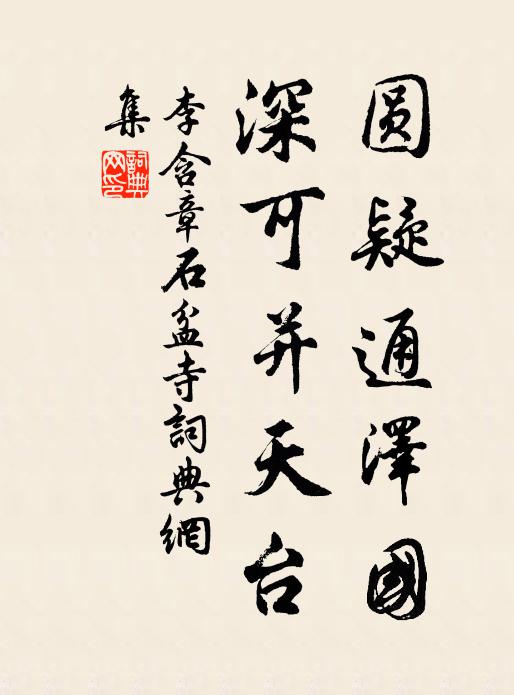 圓疑通澤國
深可并天台
李含章石盆寺詞典網
集
詞典網印